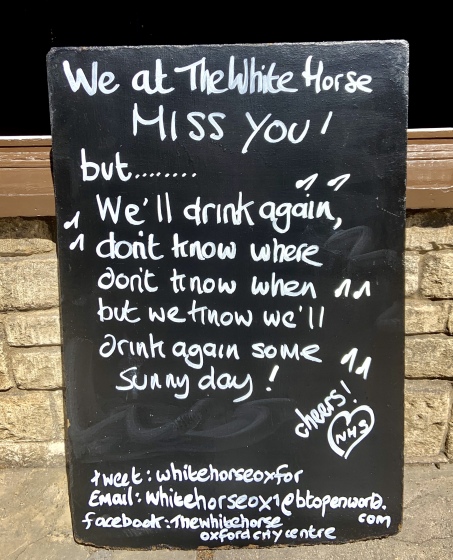 We at The White Horse
MISS YOU!
but........
We'll drink again,
don't know where
don't know when
but we know we'll
drink again some
sunny day!
cheers!
NHS
tweet: whitehorseoxfor
Email: whitehorseox1@btopenworld.
com
facebook: Thewhitehorse
oxfordcitycentre